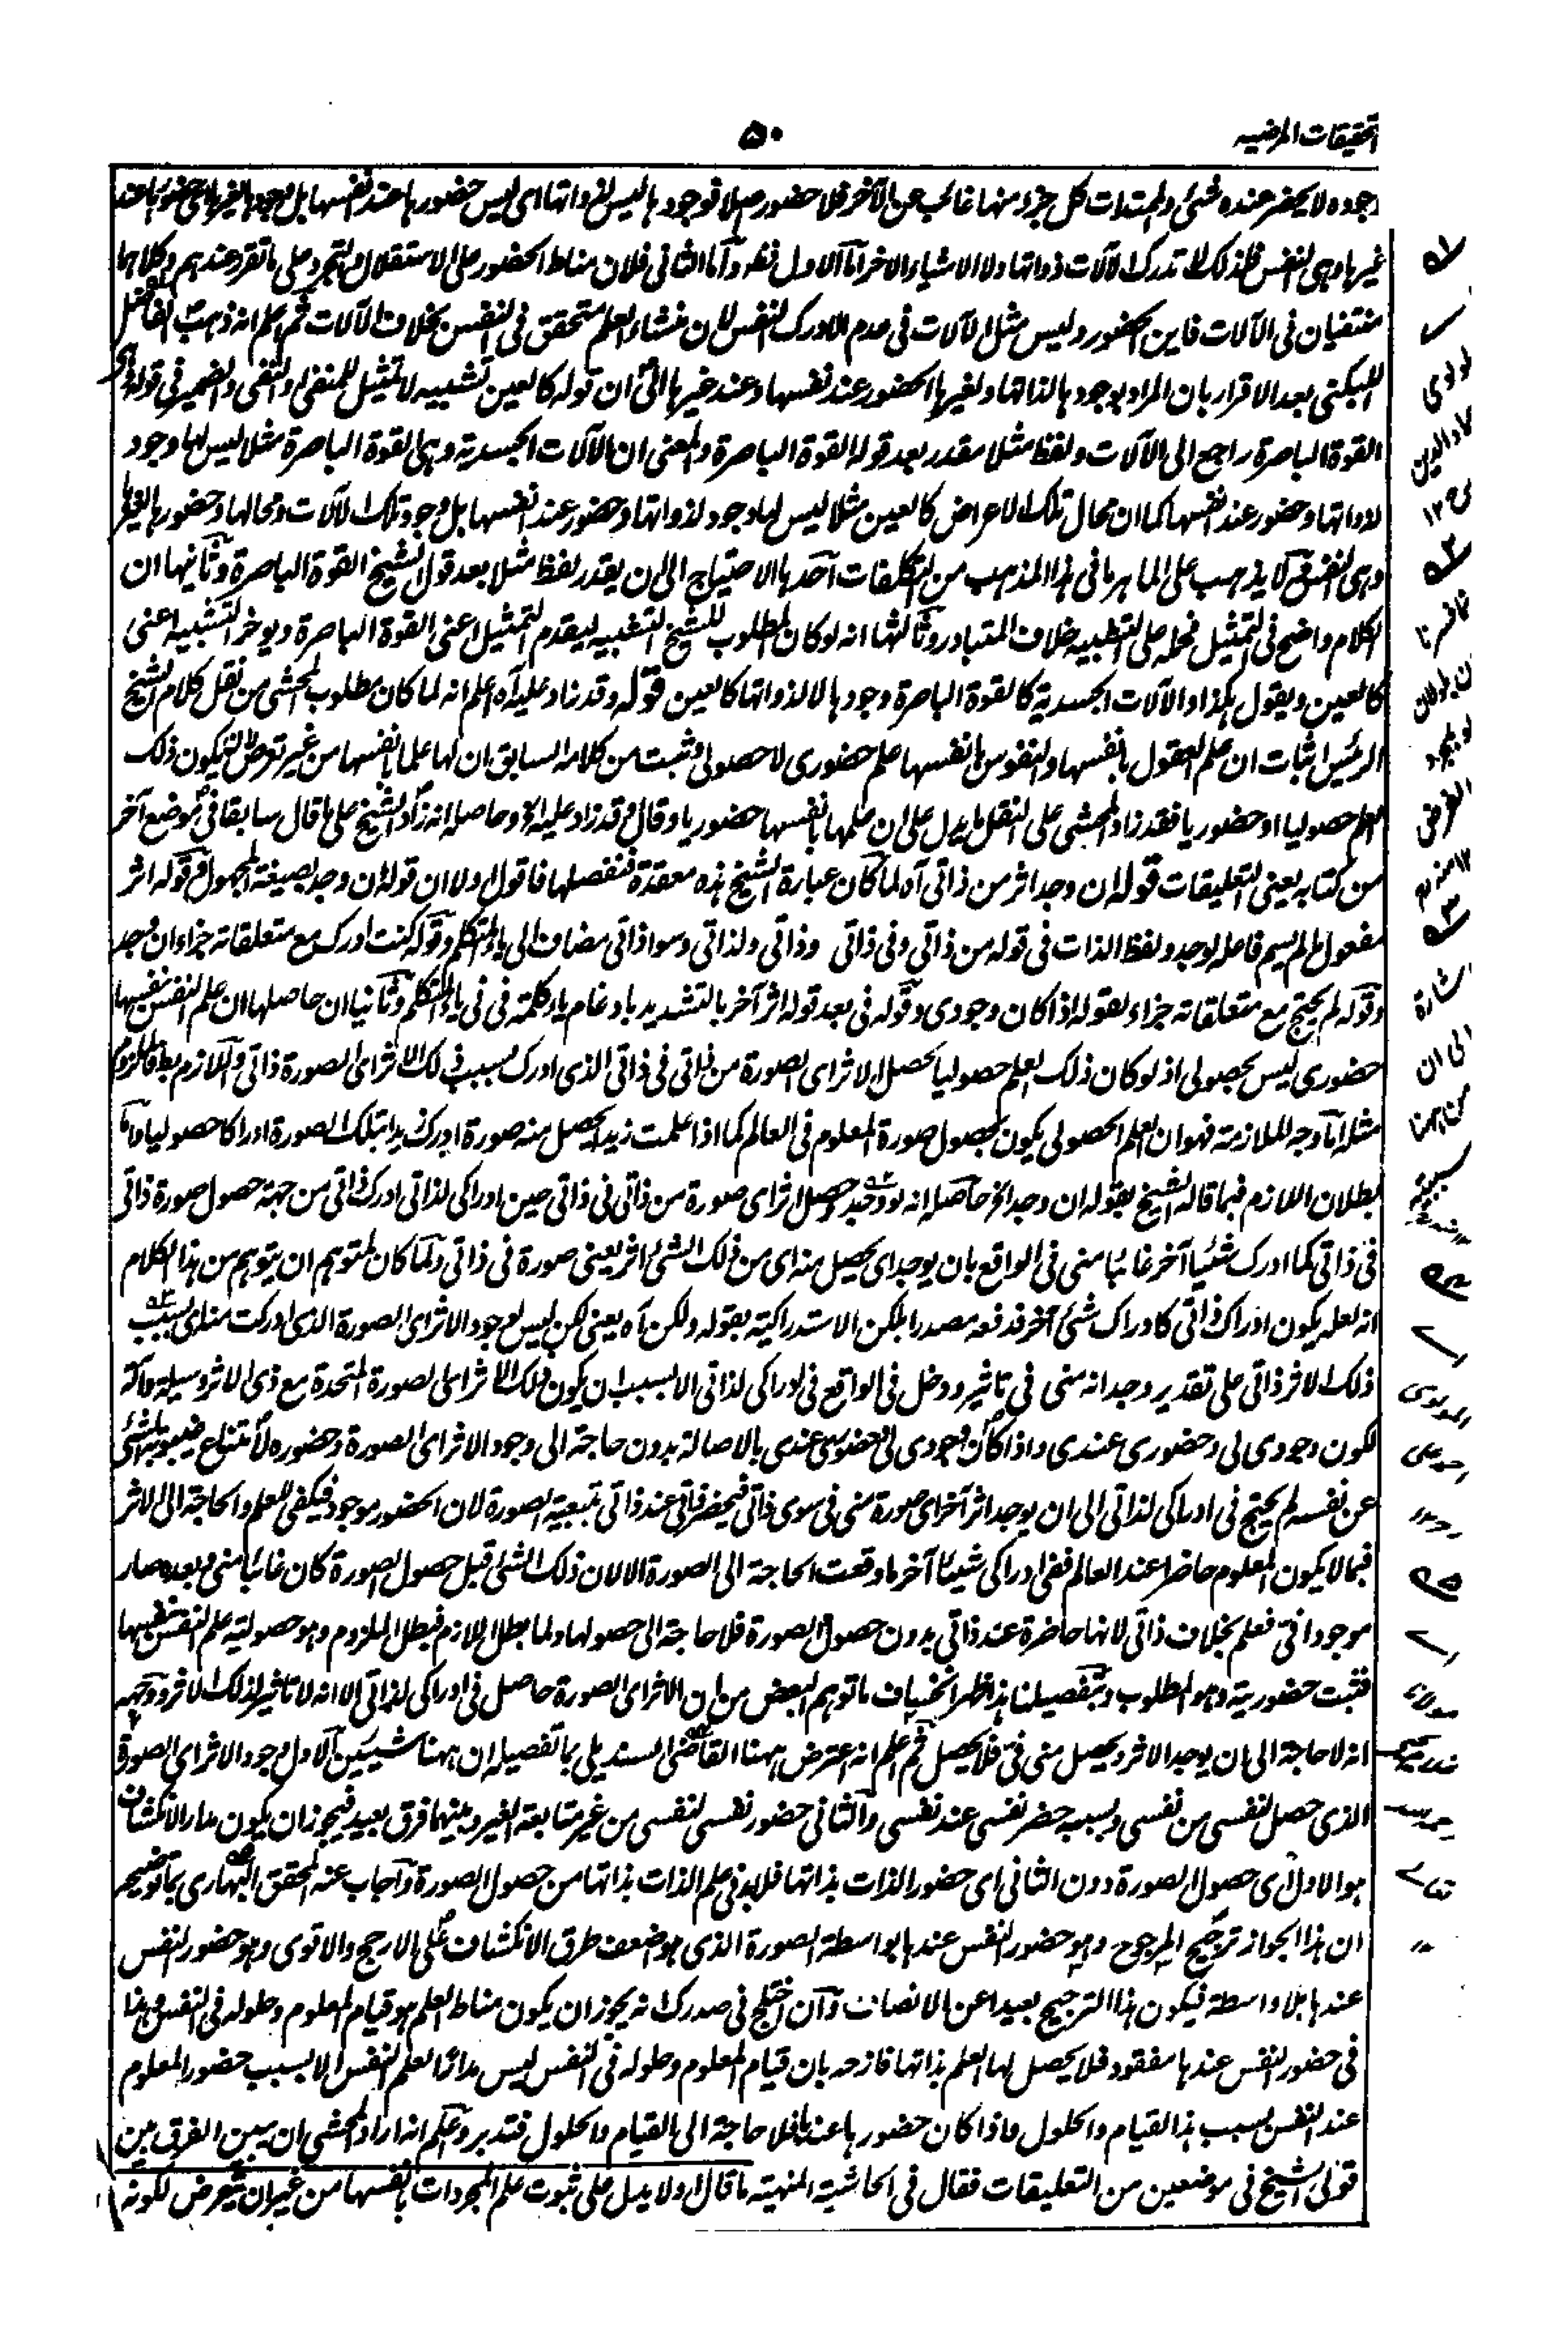 تحقیقات المرضیه
۵۰
اجوده لا یحضر عنده شئ والممتدات کل جزء منها غائب عن الآخر فلا حضور اصلا فوجودها لیس لذواتها ای لیس حضورها عند نفسها بل وجودها لغیرها ای حضورها عند
غیرها وهی النفس فلذلک لا تدرک الآلات ذواتها ولا الاشیاء الاخر اما الاول فظ واما الثانی فلان مناط الحضور علی الاستقلال والتجرد علی ما تقرر عندهم وکلاهما
منتفیان فی الآلات فاین الحضور ولیس مثل الآلات فی عدم الادراک النفس لان منشاء العلم متحقق فی النفس بخلاف الآلات ثم اعلم انه ذهب الفاضل
اللبکنی بعد الاقرار بان المراد بوجودها لذاتها ولغیرها الحضور عند نفسها وعند غیرها الی ان قوله کالعین تشبیه لا تمثیل للمنفی والنفی والضمیر فی قوله
القوة الباصرة راجع الی الآلات ولفظ مثلا مقدر بعد قوله القوة الباصرة والمعنی ان الآلات الجسدیة وهی القوة الباصرة مثلا لیس لها وجود
لذواتها وحضور عند انفسها کما ان محال تلک الاعراض کالعین مثلا لیس لها وجود لذواتها وحضور عند انفسها بل وجود تلک الآلات ومحالها وحضورها لغیرها
وهی النفس لا یذهب علی الماهر ما فی هذا المذهب من التکلفات احدها الاحتیاج الی ان یقدر لفظ مثلا بعد قول الشیخ القوة الباصرة وثانیها ان
الکلام واضح فی التمثیل فحمله علی التشبیه خلاف المتبادر وثالثها انه لو کان المطلوب للشیخ التشبیه لیقدم التمثیل اعنی القوة الباصرة ویوخر التشبیه اعنی
کالعین ویقول هکذا والآلات الجسدیة کالقوة الباصرة وجودها لا لذواتها کالعین قوله وقد زاد علیه آه اعلم انه لما کان مطلوب المحشی من نقل کلام الشیخ
الرئیس اثبات ان علم العقول بانفسها والنفوس بانفسها علم حضوری لا حصولی وثبت من کلامه السابق ان لها علما بانفسها من غیر تعرض لکون ذلک
العلم حصولیا او حضوریا فقد زاد المحشی علی النقل ما یدل علی ان علمها بانفسها حضوریا وقال وقد زاد علیه الخ وحاصله انه زاد الشیخ علی ما قال سابقا فی موضع آخر
من کتابه یعنی التعلیقات قوله ان وجد اثر من ذاتی آه لما کان عبارة الشیخ هذه معقدة فنفصلها فاقول اولا ان قوله ان وجد بصیغة المجهول وقوله اثر
مفعول ما لم یسم فاعله لوجد ولفظ الذات فی قوله من ذاتی وفی ذاتی وذاتی ولذاتی وسوا ذاتی مضاف الی یاء المتکلم وقوله کنت ادرک مع متعلقاته جزاء ان وجد
وقوله لم یحتج مع متعلقاته جزاء لقوله اذا کان وجودی وقوله فی بعد قوله اثر آخر بالتشدید بادغام یاء کلمة فی فی یاء المتکلم وثانیا ان حاصلها ان علم النفس بنفسها
حضوری لیس بحصولی اذ لو کان ذلک العلم حصولیا یحصل الاثر ای الصورة من ذاتی فی ذاتی الذی ادرک بسبب ذلک الاثر ای الصورة ذاتی واللازم باطل فالملزوم
مثله اما وجه الملازمة فهو ان العلم الحصولی یکون بحصول صورة المعلوم فی العالم کما اذا علمت زیدا یحصل منه صورة ادرک زیدا بتلک الصورة ادراکا حصولیا واما
بطلان اللازم فبما قاله الشیخ بقوله ان وجد الخ حاصله انه لو وجد وحصل اثر ای صورة من ذاتی فی ذاتی حین ادراکی لذاتی ادرک ذاتی من جهة حصول صورة ذاتی
فی ذاتی کما ادرک شیئا آخر غائبا منی فی الواقع بان یوجد ای یحصل منه ای من ذلک الشئ اثر یعنی صورة فی ذاتی ولما کان لمتوهم ان یتوهم من هذا الکلام
انه لعله یکون ادراک ذاتی کادراک شئ آخر فدفعه مصدرا بلکن الاستدراکیة بقوله ولکن آه یعنی لکن لیس لوجود الاثر ای الصورة الذی ادرکت منه ای بسبب
ذلک الاثر ذاتی علی تقدیر وجدانه منی فی تاثیر ودخل فی الواقع فی ادراکی لذاتی الا بسبب ان یکون ذلک الاثر ای الصورة المتحدة مع ذی الاثر وسیلة وآلة
لکون وجودی لی وحضوری عندی واذا کان وجودی لی وحضوری عندی بالاصالة بدون حاجة الی وجود الاثر ای الصورة وحضوره لامتناع غیبوبة الشئ
عن نفسه لم یحتج فی ادراکی لذاتی الی ان یوجد اثر آخر ای صورة منی فی سوی ذاتی فیحضر ذاتی عند ذاتی بتبعیة الصورة لان الحضور موجود فیکفی للعلم والحاجة الی الاثر
فیما لا یکون المعلوم حاضرا عند العالم ففی ادراکی شیئا آخر ما وقعت الحاجة الی الصورة الا لان ذلک الشئ قبل حصول الصورة کان غائبا منی وبعده صار
موجودا فی فعلم بخلاف ذاتی لانها حاضرة عند ذاتی بدون حصول الصورة فلا حاجة الی حصولها ولما بطل اللازم فبطل الملزوم وهو حصولیة علم النفس بنفسها
فثبت حضوریته وهو المطلوب وبتفصیلنا هذا ظهر انخساف ما توهم البعض من ان الاثر ای الصورة حاصل فی ادراکی لذاتی الا انه لا تاثیر لذلک الاثر ووجهه
انه لا حاجة الی ان یوجد الاثر ویحصل منی فی فلا یحصل ثم اعلم انه اعترض ههنا القاضی السندیلی بما تفصیله ان ههنا شیئین الاول وجود الاثر ای الصورة
الذی حصل لنفسی من نفسی وبسببه حضر نفسی عند نفسی والثانی حضور نفسی لنفسی من غیر متابعة الغیر وبینهما فرق بعید فیجوز ان یکون مدار الانکشاف
هو الاول ای حصول الصورة دون الثانی ای حضور الذات بذاتها فلا بد فی علم الذات بذاتها من حصول الصورة واجاب عنه المحقق البهاری بما توضیحه
ان هذا الجواز ترجیح المرجوح وهو حضور النفس عندها بواسطة الصورة الذی هو اضعف طرق الانکشاف علی الارجح والاقوی وهو حضور النفس
عندها بلا واسطة فیکون هذا الترجیح بعیدا عن الانصاف وان اختلج فی صدرک انه یجوز ان یکون مناط العلم هو قیام المعلوم وحلوله فی النفس وهذا
فی حضور النفس عندها مفقود فلا یحصل لها العلم بذاتها فازحه بان قیام المعلوم وحلوله فی النفس لیس مدارا لعلم النفس الا بسبب حضور المعلوم
عند النفس بسبب هذا القیام والحلول واذا کان حضورها عندها فلا حاجة الی القیام والحلول فتدبر واعلم انه اراد المحشی ان یبین الفرق بین
قولی الشیخ فی موضعین من التعلیقات فقال فی الحاشیة المنهیة ما قال اولا یدل علی ثبوت علم المجردات بانفسها من غیر ان یتعرض لکونه